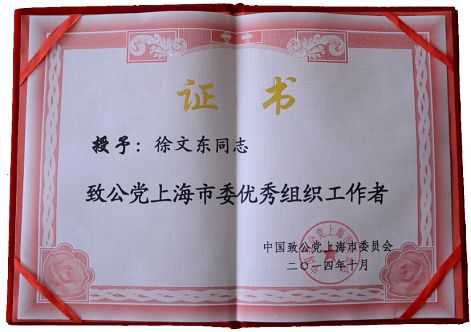 证书
授予：徐文东同志
致公党上海市委优秀组织工作者
中国致公党上海市委员会
二〇一四年十月